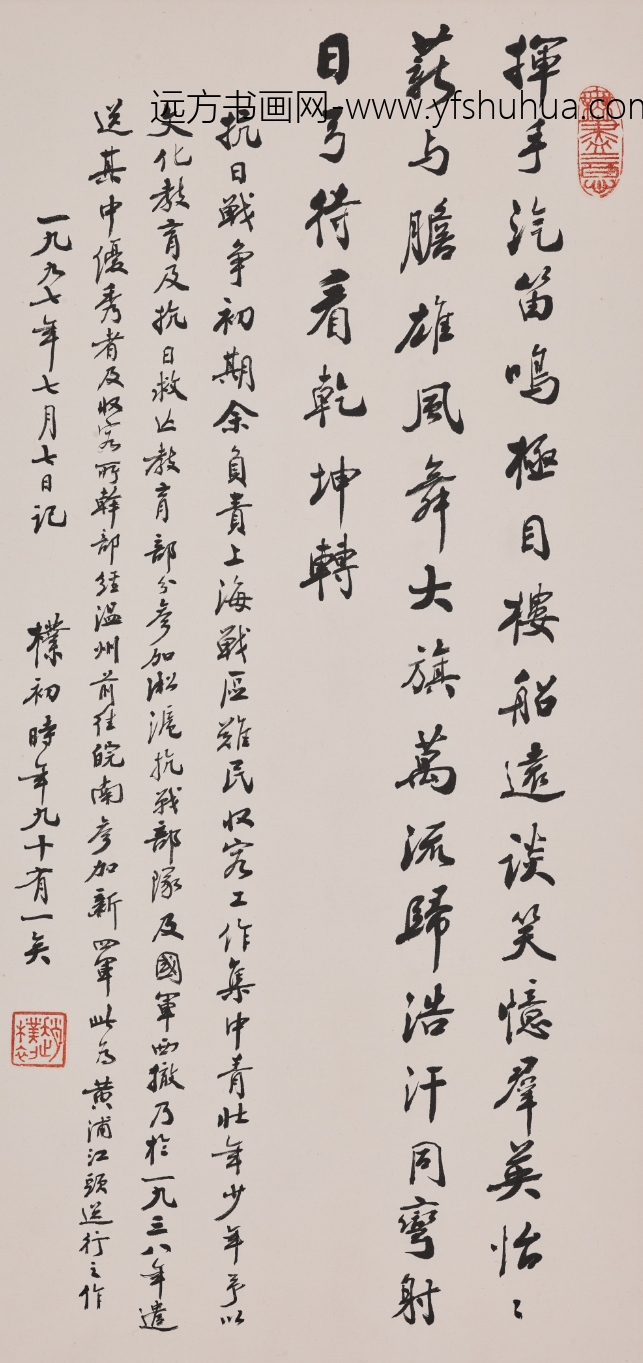 揮手汽笛鳴極目樓船遠談笑憶羣英怡〻
薪与膽雄風舞大旗萬流歸浩汗同彎射
日弓待看乾坤轉
抗日戰争初期余負責上海戰區難民收容工作集中青壯年少年予以
文化教育及抗日救亡教育部分參加淞滬抗戰部隊及國軍西撤乃於一九三八年遣
送其中優秀者及收容所幹部經温州前往皖南參加新四軍此為黄浦江頭送行之作
一九九七年七月七日記 樸初時年九十有一矣
趙樸初
远方书画网-www.yfshuhua.com